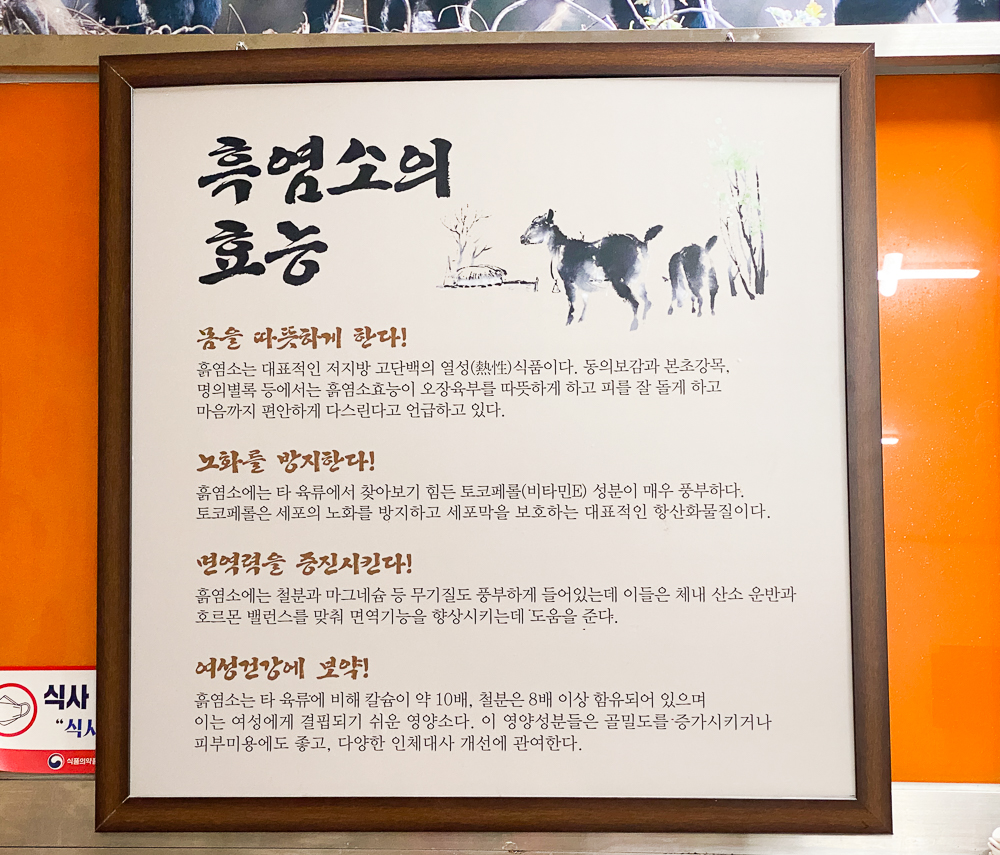 흑염소의
효능
몸을 따뜻하게 한다!
흙염소는 대표적인 저지방 고단백의 열성(熱性)식품이다. 동의보감과 본초강목,
명의별록 등에서는 흙염소효능이 오장육부를 따뜻하게 하고 피를 잘 돌게 하고
마음까지 편안하게 다스린다고 언급하고 있다.
노화를 방지한다!
흙염소에는 타 육류에서 찾아보기 힘든 토코페롤(비타민E) 성분이 매우 풍부하다.
토코페롤은 세포의 노화를 방지하고 세포막을 보호하는 대표적인 항산화물질이다.
면역력을 증진시킨다!
흙염소에는 철분과 마그네슘 등 무기질도 풍부하게 들어있는데 이들은 체내 산소 운반과
호르몬 밸런스를 맞춰 면역기능을 향상시키는데 도움을 준다.
여성건강에 보약!
흙염소는 타 육류에 비해 칼슘이 약 10배, 철분은 8배 이상 함유되어 있으며
이는 여성에게 결핍되기 쉬운 영양소다. 이 영양성분들은 골밀도를 증가시키거나
피부미용에도 좋고, 다양한 인체대사 개선에 관여한다.
식사
“식사
식품의약품